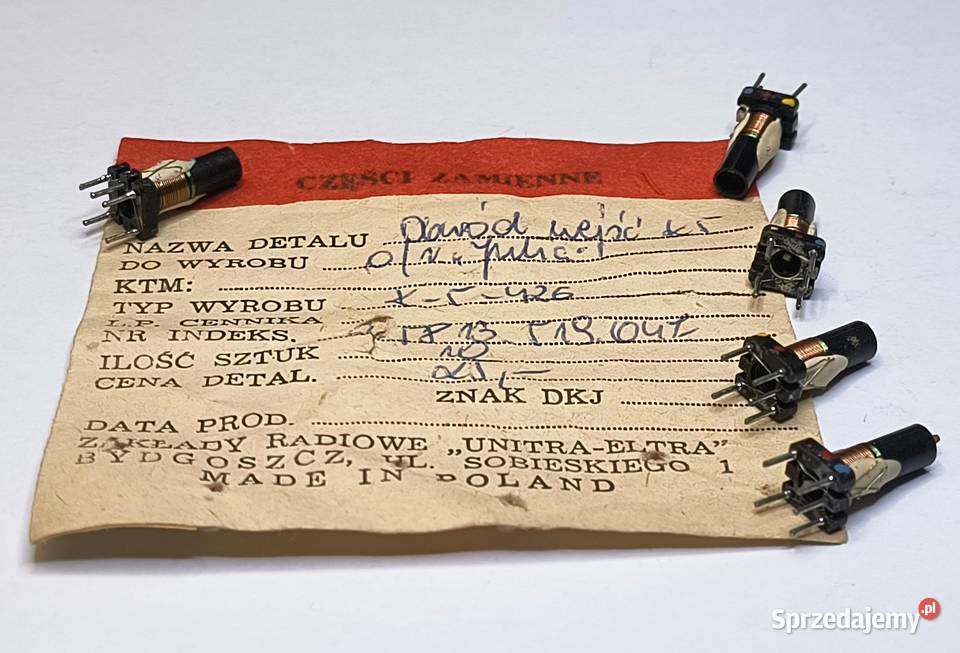 CZĘŚCI ZAMIENNE
NAZWA DETALU Obwód wejść
DO WYROBU
KTM:
TYP WYROBU K-5-426
L.P. CENNIKA
NR INDEKS.
ILOŚĆ SZTUK 10
CENA DETAL. 25,-
ZNAK DKJ
DATA PROD.
ZAKŁADY RADIOWE „UNITRA-ELTRA”
BYDGOSZCZ, UL. SOBIESKIEGO 1
MADE IN POLAND
Sprzedajemy.pl